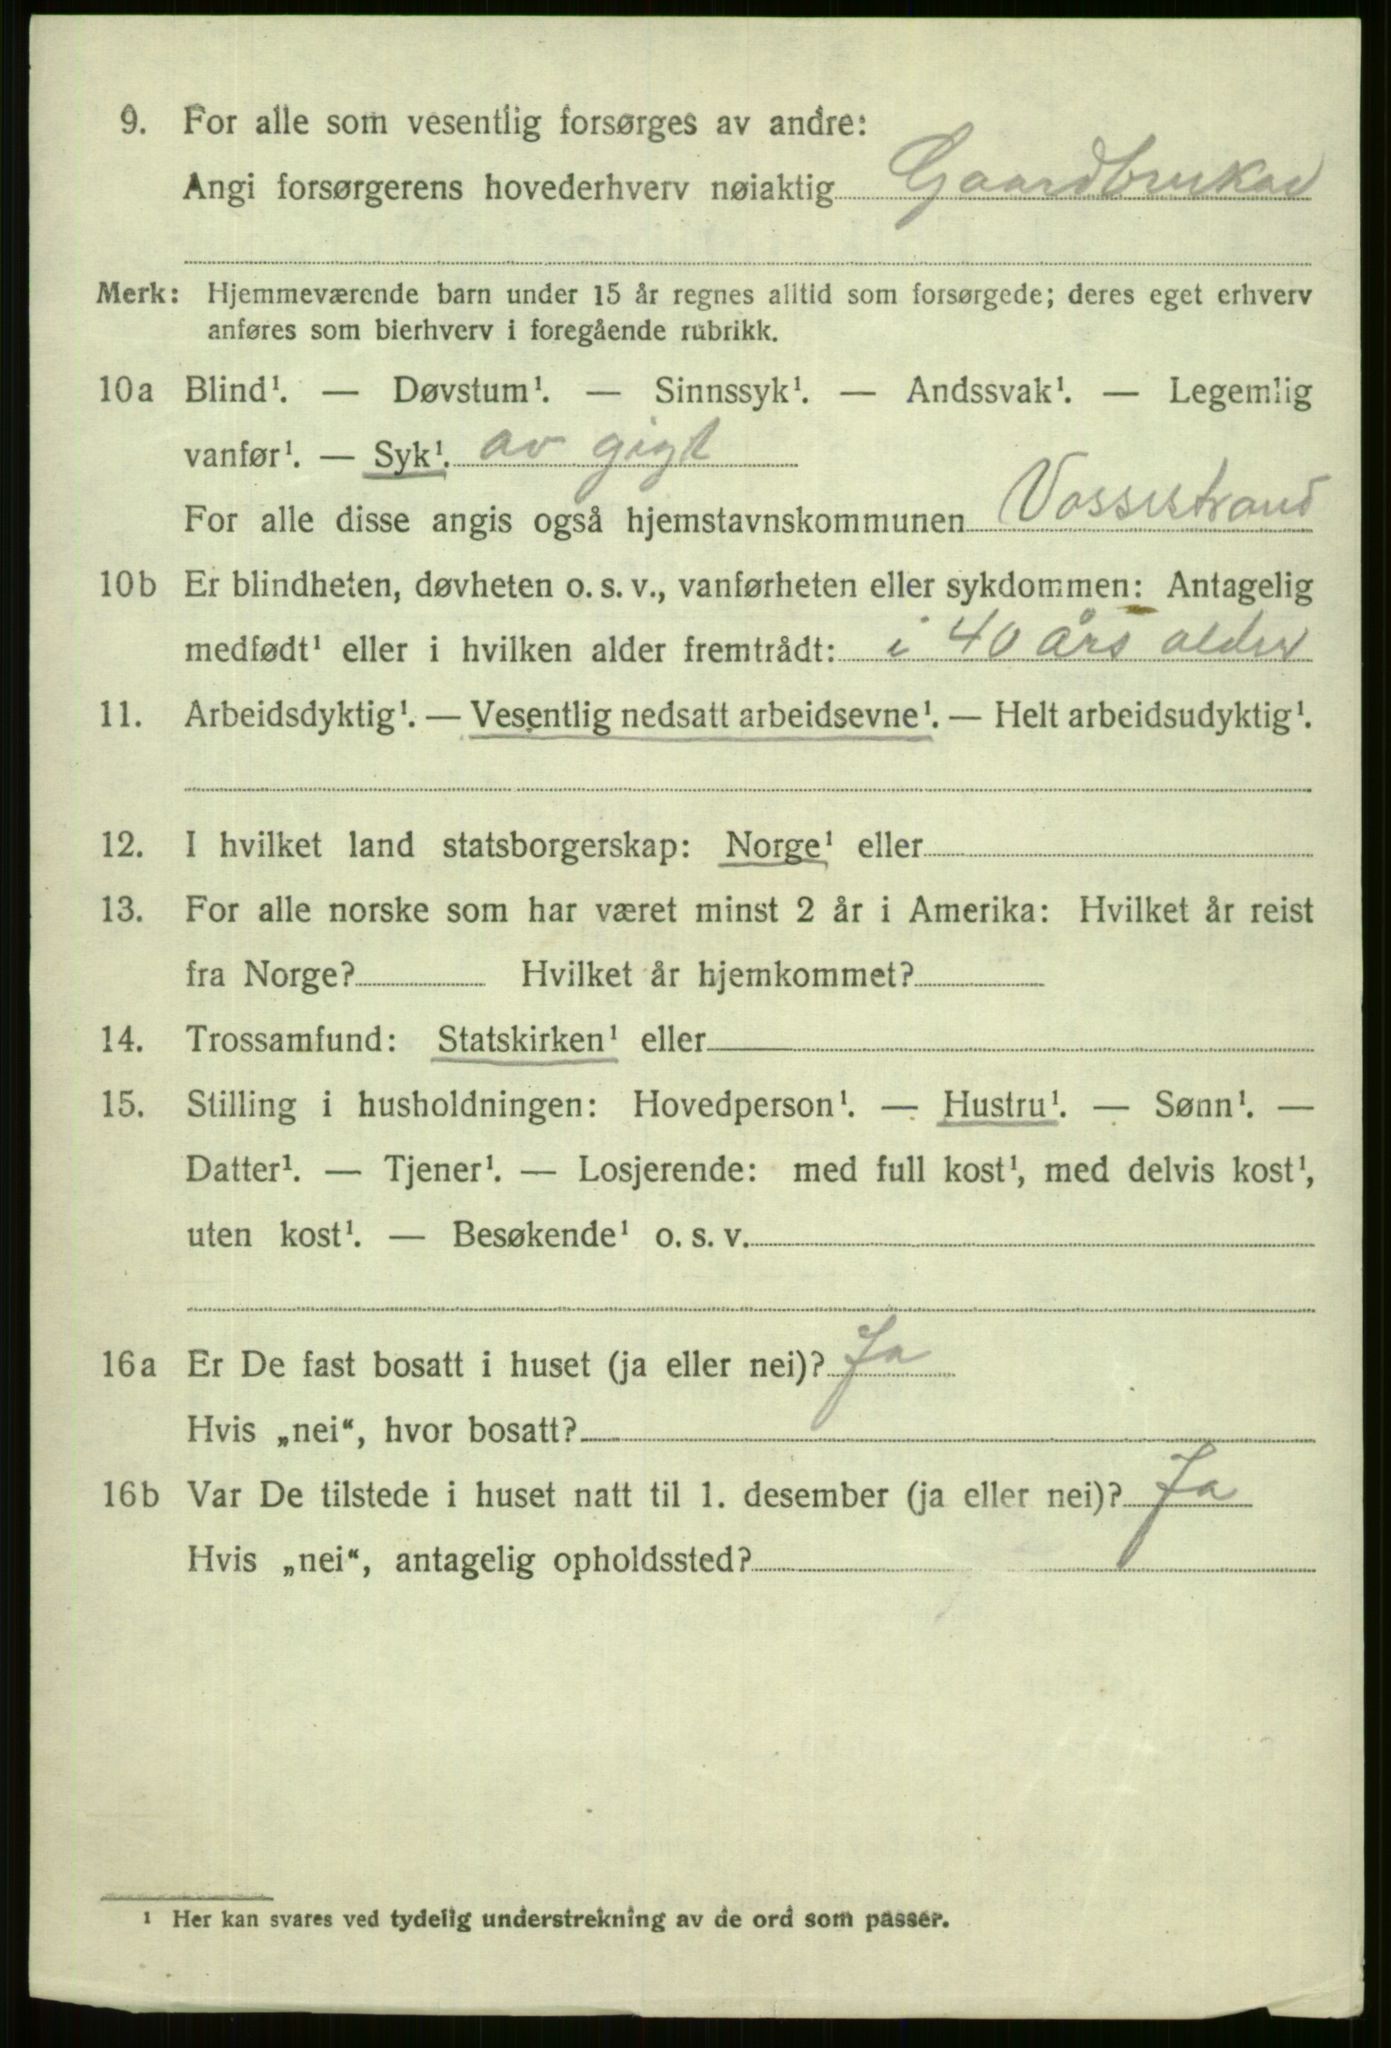 9. For alle som vesentlig forsørges av andre:
Angi forsørgerens hovederhverv nøiaktig Gaardbrukar
Merk: Hjemmeværende barn under 15 år regnes alltid som forsørgede; deres eget erhverv
anføres som bierhverv i foregående rubrikk.
10a Blind¹. — Døvstum¹. — Sinnssyk¹. — Andssvak¹. — Legemlig
vanfør¹. — Syk¹. av gigt
For alle disse angis også hjemstavnskommunen Vossestrand
10b Er blindheten, døvheten o. s. v., vanførheten eller sykdommen: Antagelig
medfødt¹ eller i hvilken alder fremtrådt: i 40 års alder
11. Arbeidsdyktig¹. — Vesentlig nedsatt arbeidsevne¹. — Helt arbeidsudyktig¹.
12. I hvilket land statsborgerskap: Norge¹ eller
13. For alle norske som har været minst 2 år i Amerika: Hvilket år reist
fra Norge? Hvilket år hjemkommet?
14. Trossamfund: Statskirken¹ eller
15. Stilling i husholdningen: Hovedperson¹. — Hustru¹. — Sønn¹. —
Datter¹. — Tjener¹. — Losjerende: med full kost¹, med delvis kost¹,
uten kost¹. — Besøkende¹ o. s. v.
16a Er De fast bosatt i huset (ja eller nei)? Ja
Hvis „nei“, hvor bosatt?
16b Var De tilstede i huset natt til 1. desember (ja eller nei)? Ja
Hvis „nei“, antagelig opholdssted?
¹ Her kan svares ved tydelig understrekning av de ord som passer.